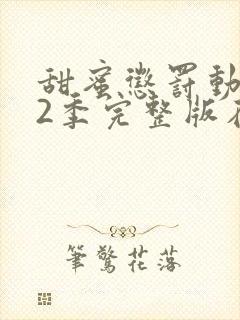 甜蜜懲罰動
2季完整版在
筆驚花落